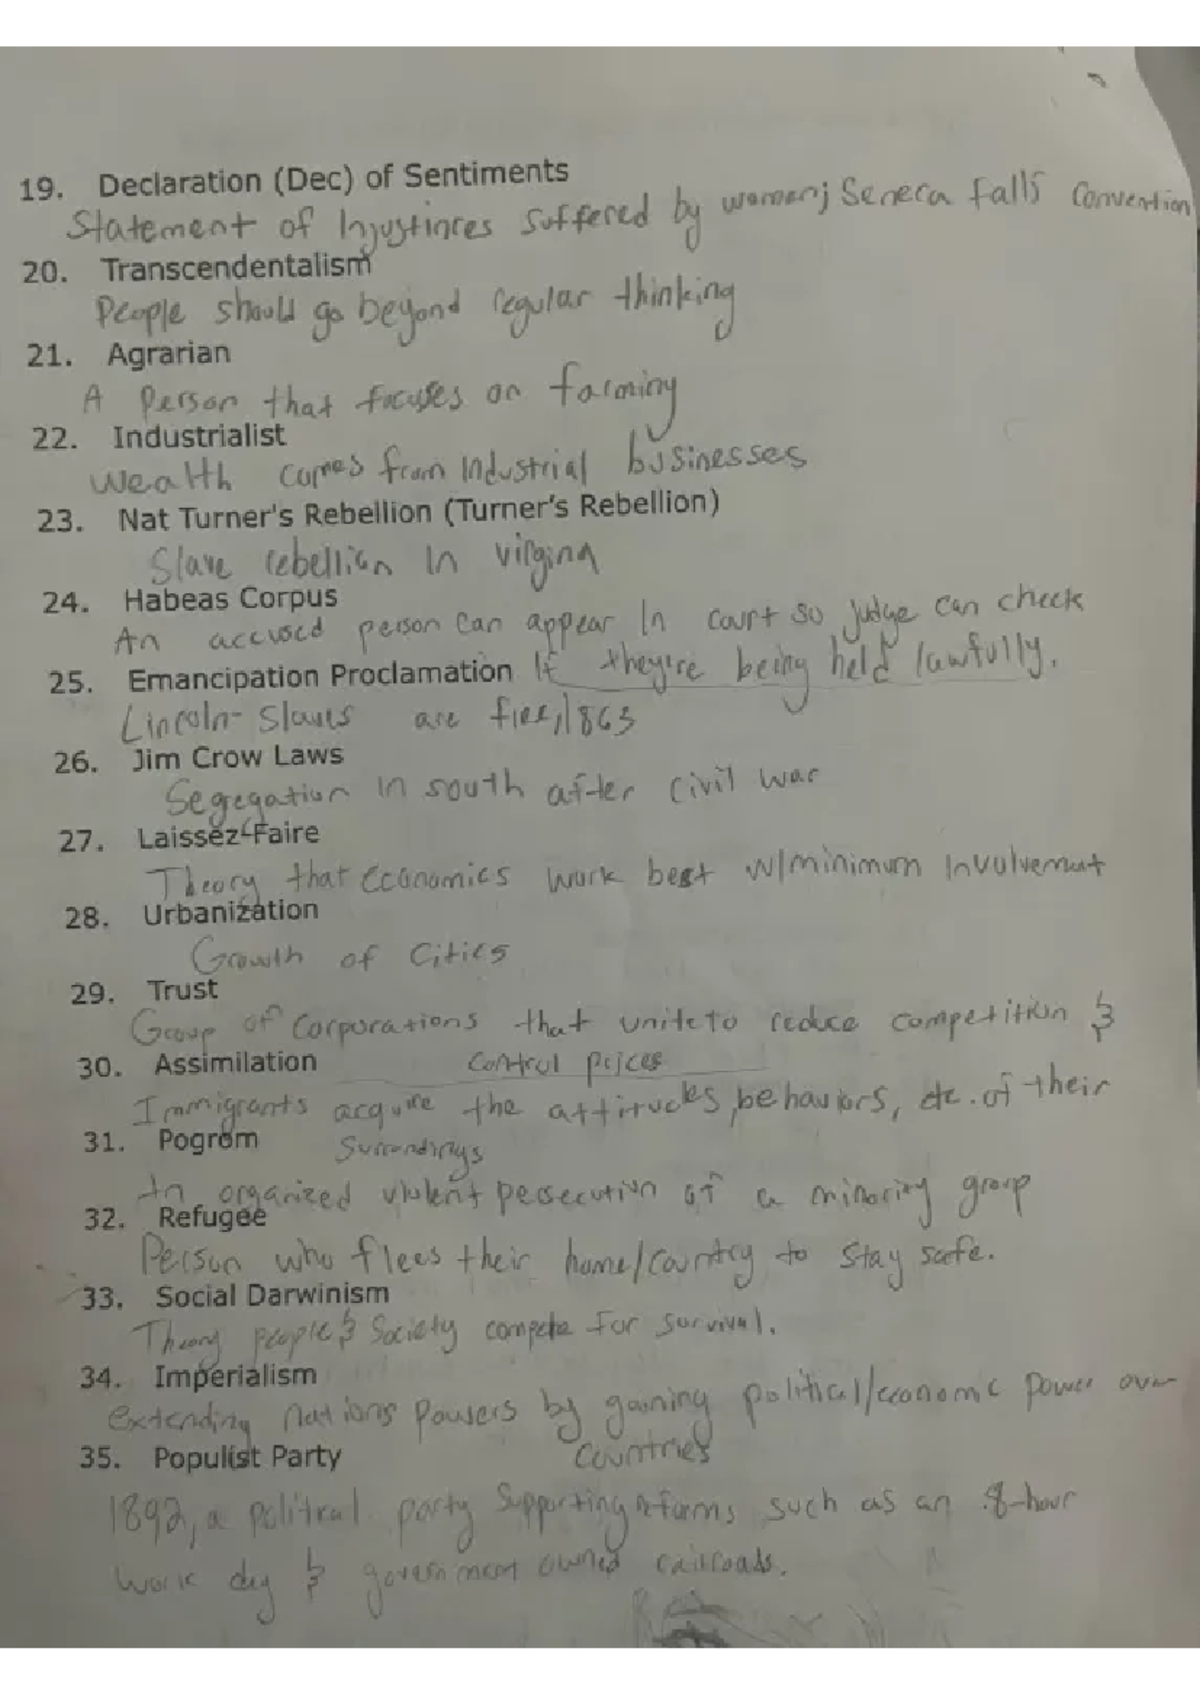 19. Declaration (Dec) of Sentiments
Statement of Injustinces suffered by women; Seneca Falls Convention
20. Transcendentalism
People should go beyond regular thinking
21. Agrarian
A Person that focuses on farming
22. Industrialist
Wealth comes from Industrial businesses
23. Nat Turner's Rebellion (Turner's Rebellion)
Slave rebellion In virgina
24. Habeas Corpus
An accused person can appear In court so judge can check
25. Emancipation Proclamation If they're being held lawfully.
Lincoln- Slaves are free, 1863
26. Jim Crow Laws
Segegation in south after civil war
27. Laissez-Faire
Theory that economics work best w/minimum Involvement
28. Urbanization
Growth of Cities
29. Trust
Group of Corporations that unite to reduce competition &
30. Assimilation control prices
Immigrants acquire the attitudes, behaviors, etc. of their
31. Pogrom Surrondings
An organized violent persecution of a minority group
32. Refugee
Person who flees their home/country to stay safe.
33. Social Darwinism
Theory people & Society compete for survival.
34. Imperialism
extending nations powers by gaining political/economic power over
35. Populist Party countries
1892, a political party supporting reforms such as an 8-hour
work day & government owned railroads.